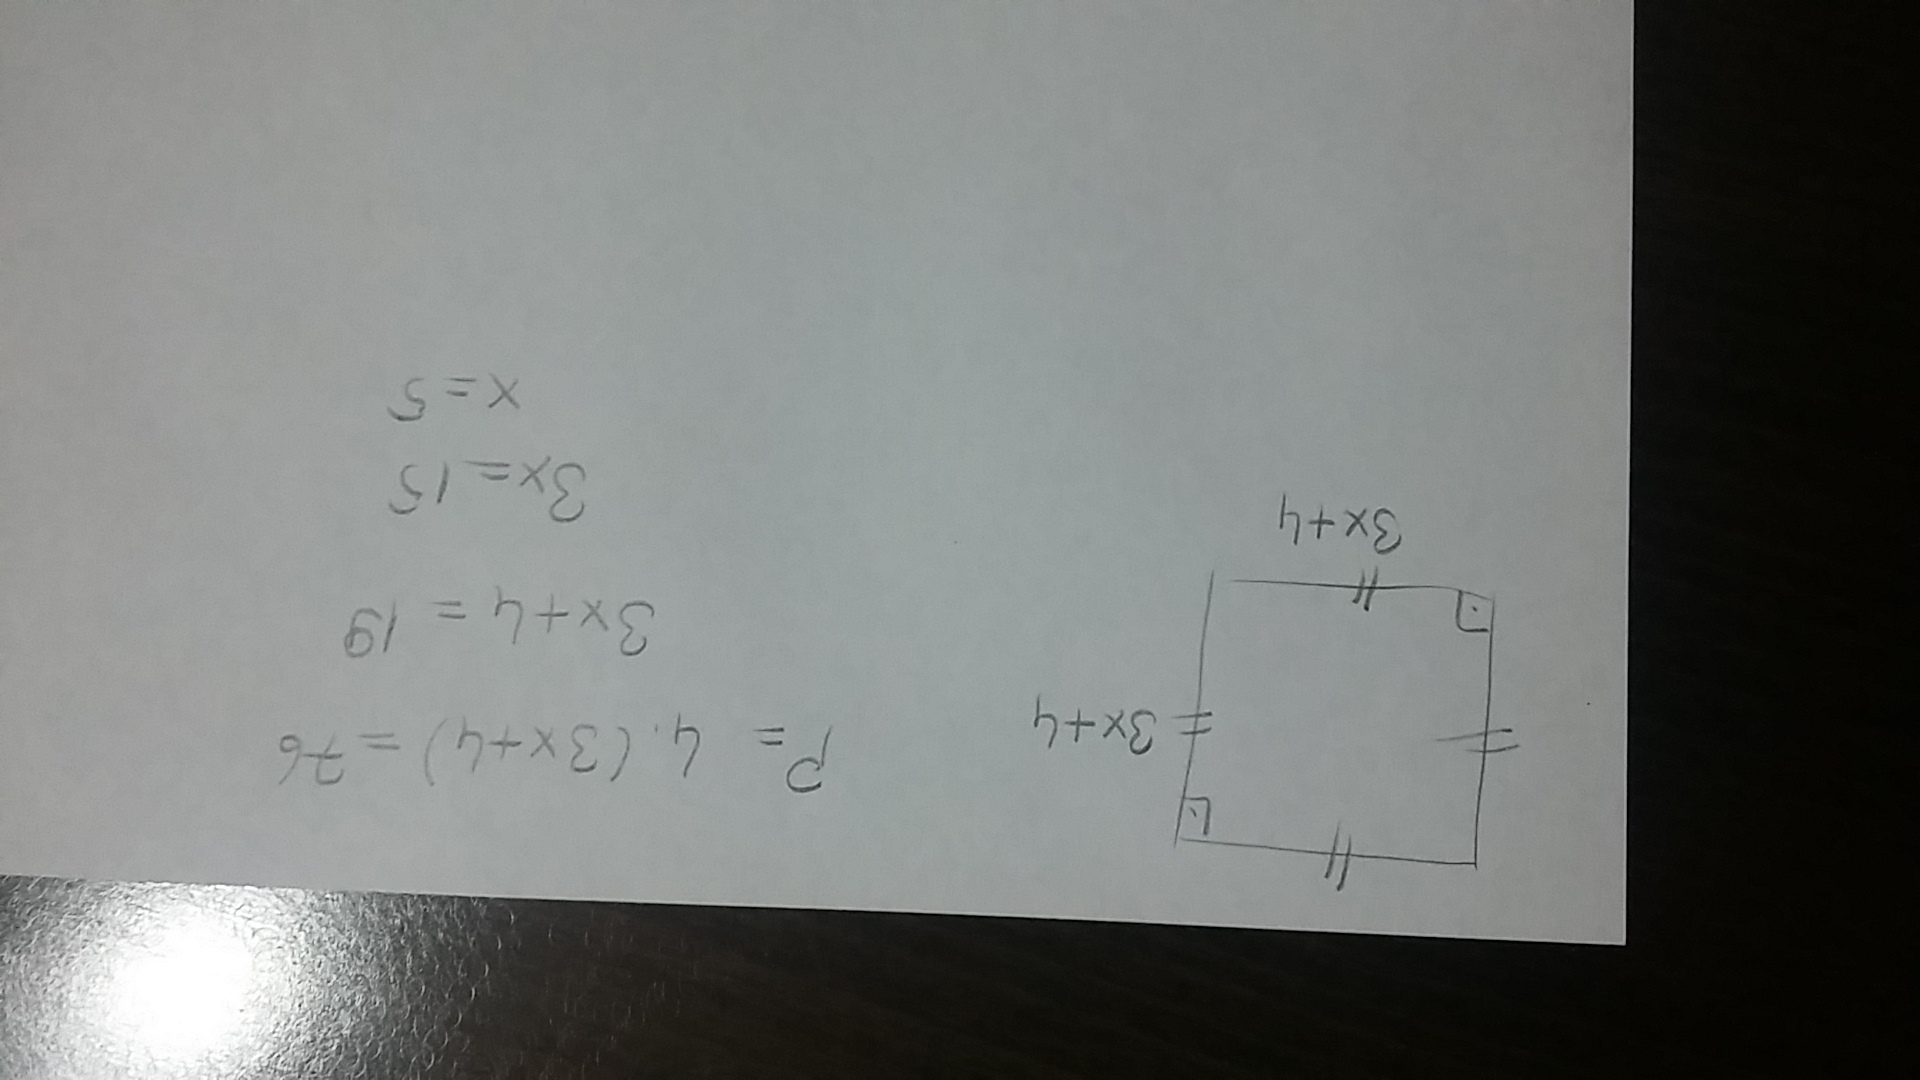 3x+4
3x+4
P = 4.(3x+4) = 76
3x+4 = 19
3x = 15
x = 5